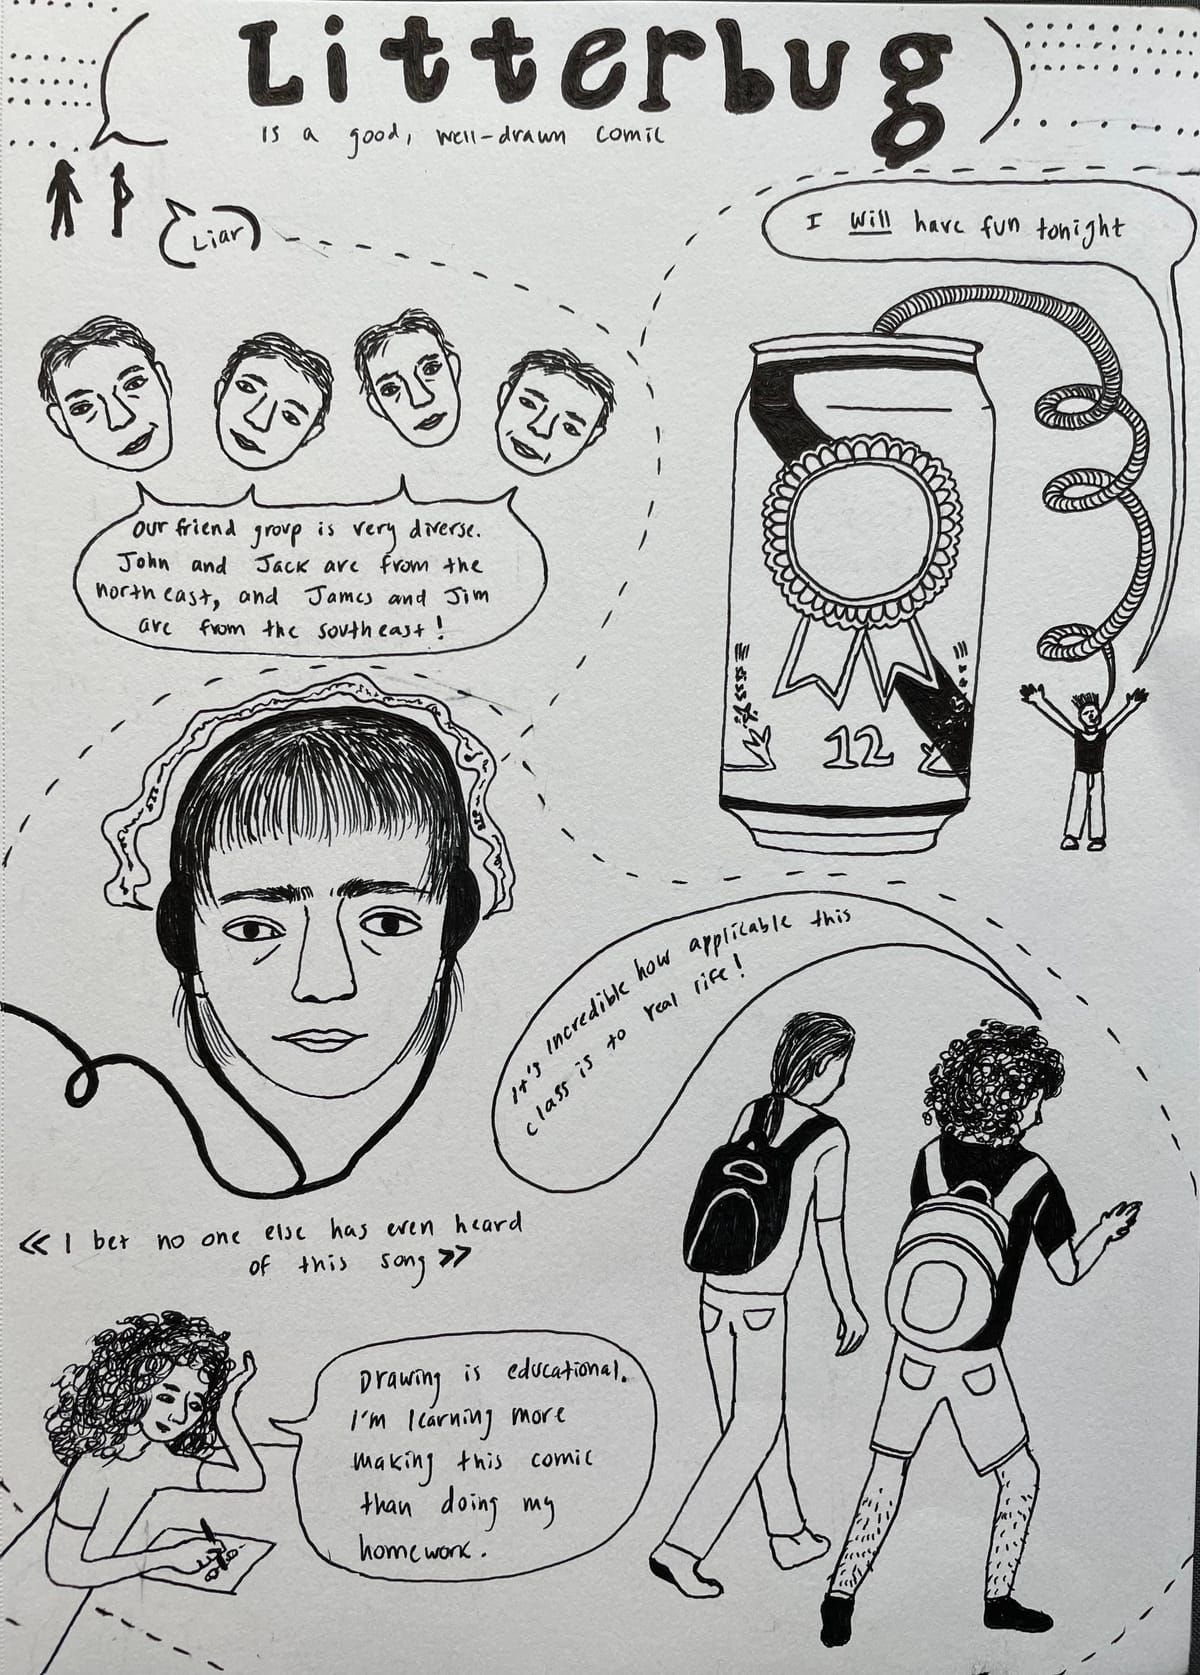 Litterbug
is a good, well-drawn comic
Liar
I will have fun tonight
Our friend group is very diverse.
John and Jack are from the
northeast, and James and Jim
are from the southeast!
12
It's incredible how applicable this
class is to real life!
<< I bet no one else has even heard
of this song >>
Drawing is educational.
I'm learning more
making this comic
than doing my
homework.